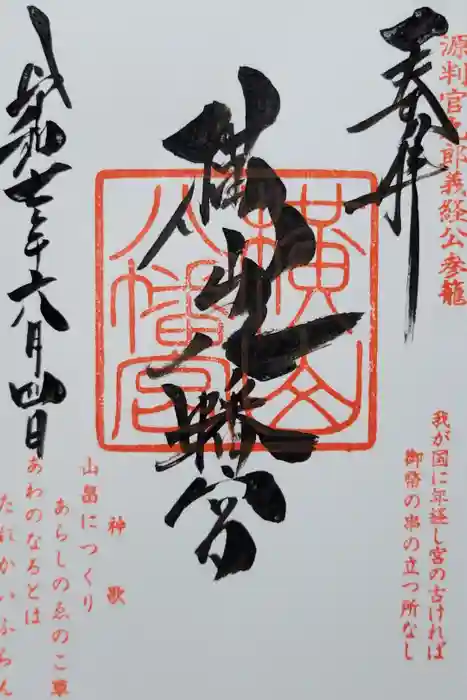 源判官九郎義経公参籠
奉拝
我が国に年経し宮の古ければ
御幣の串の立つ所なし
横山八幡宮
横山
八幡宮
神歌
山畠につくり
あらしのゑのこ草
あわのなるとは
たれかいふらん
令和七年六月四日